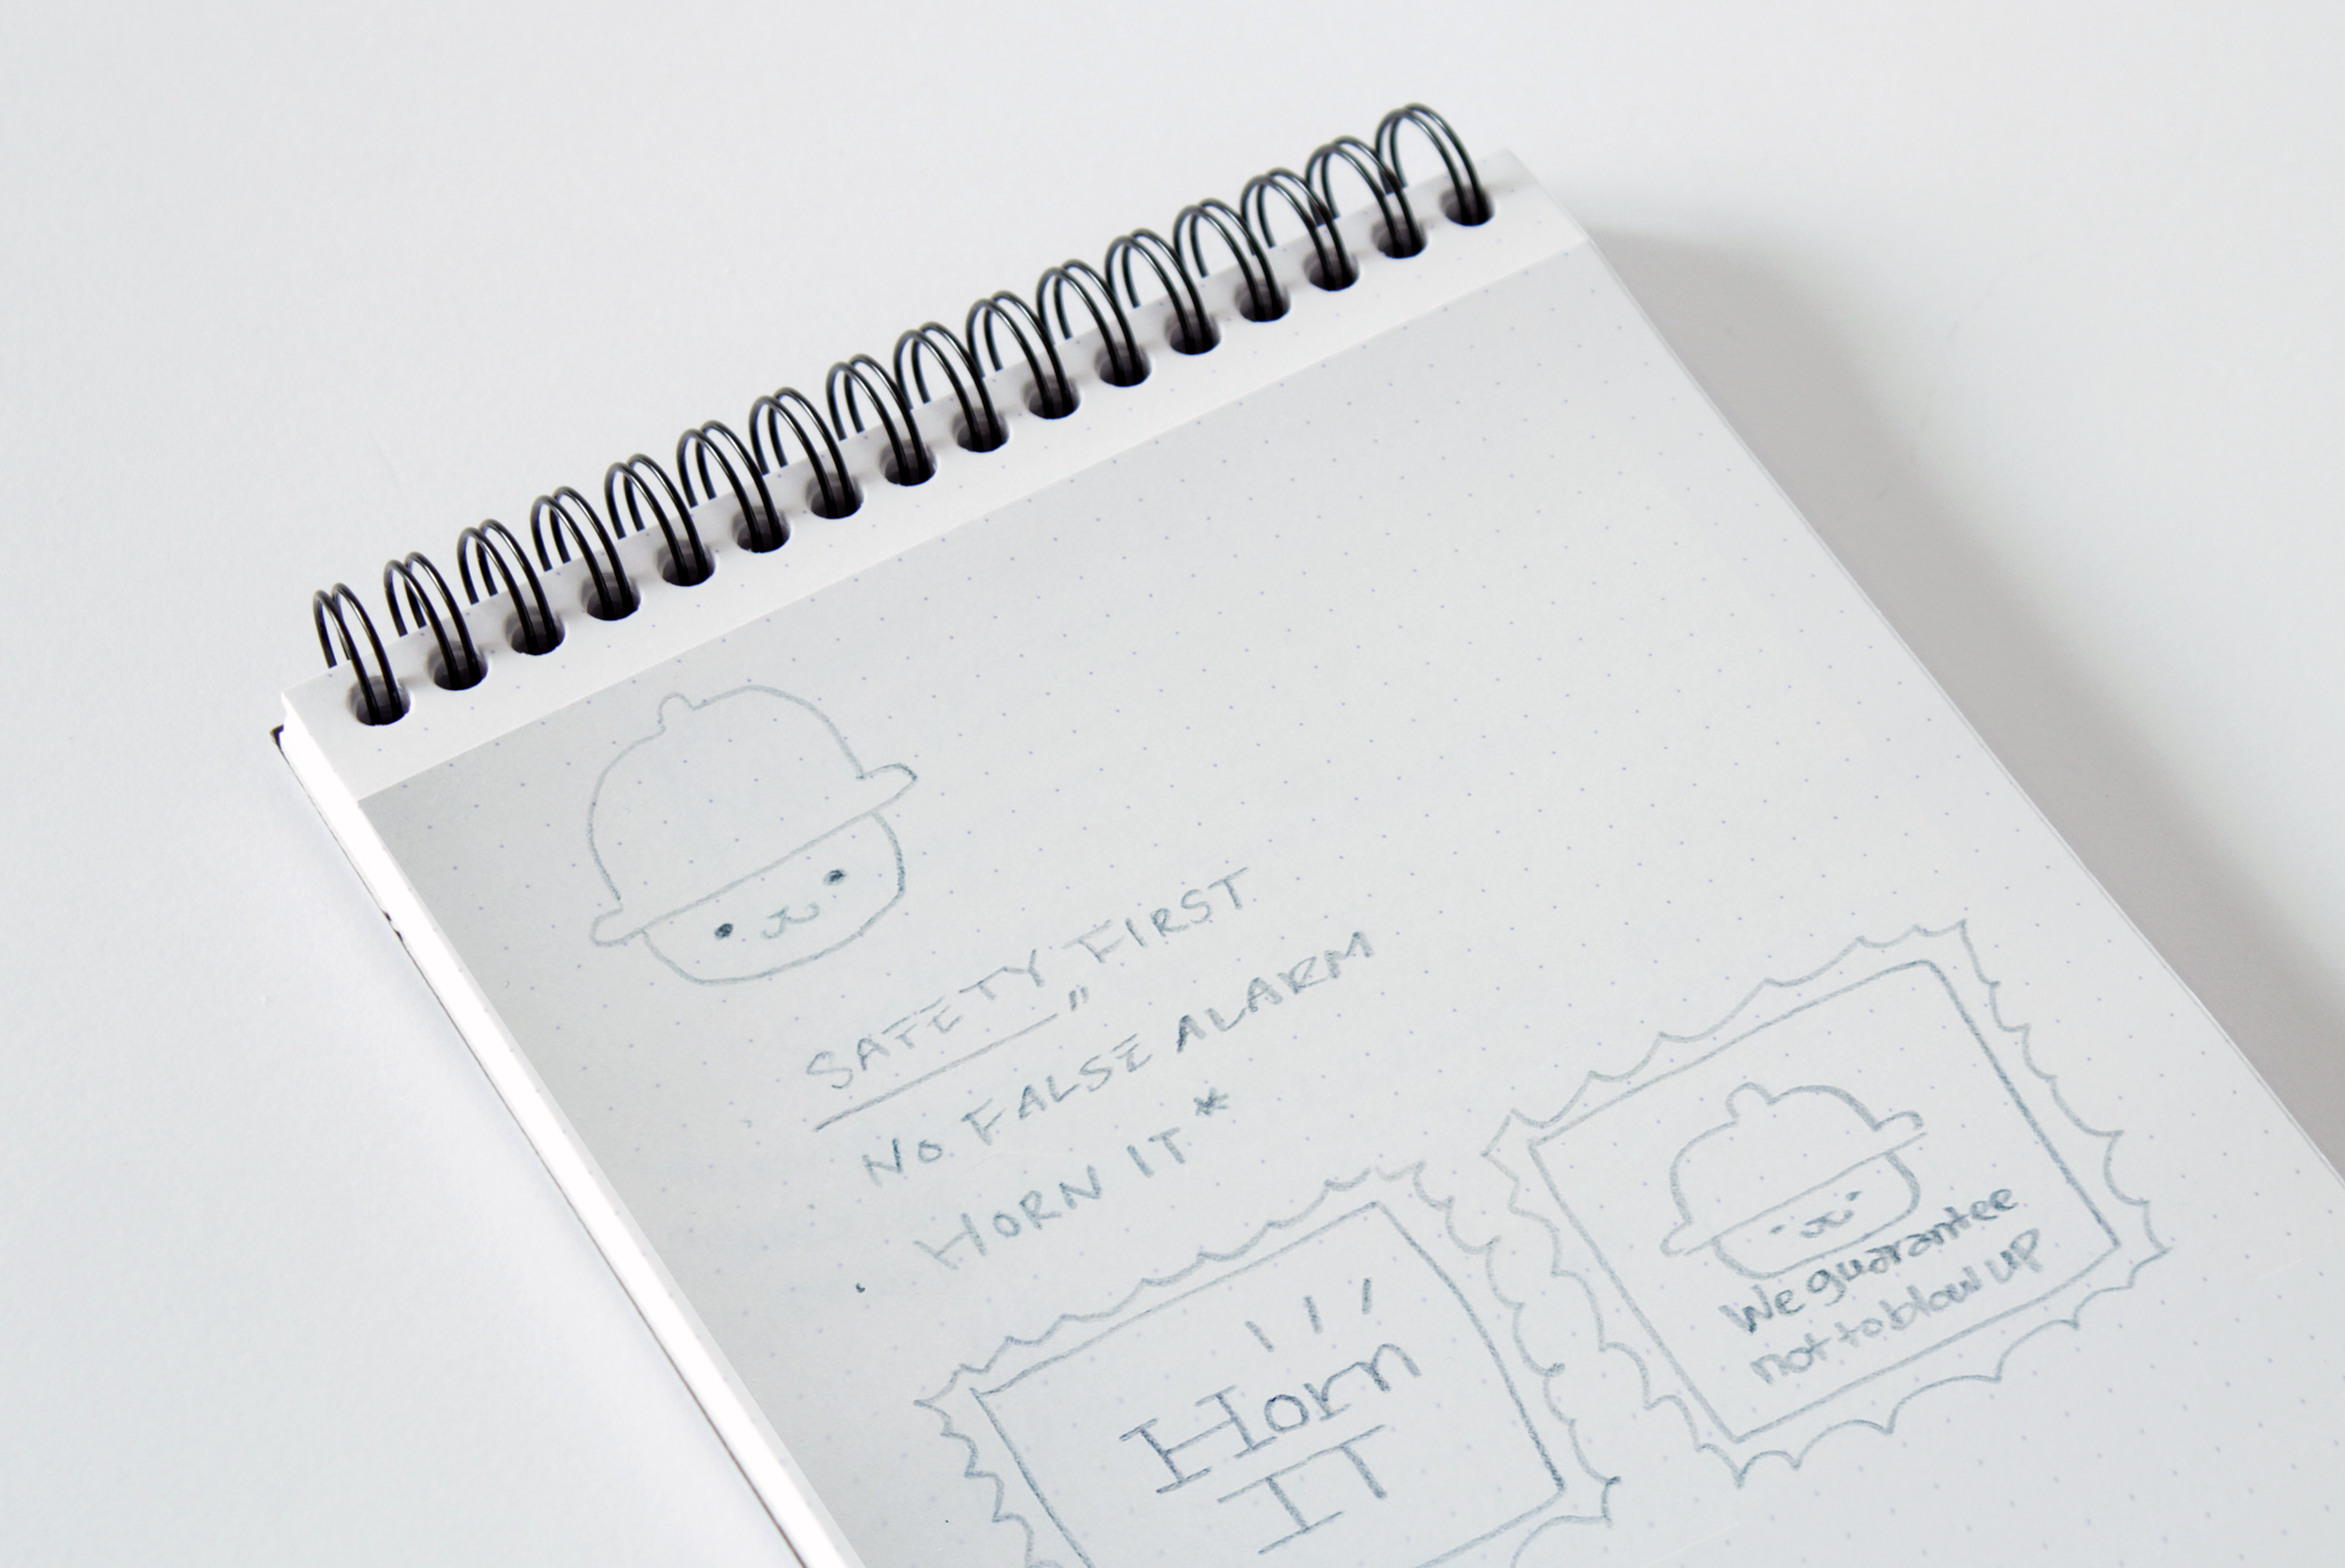 SAFETY FIRST
"
NO FALSE ALARM
HORN IT*
We guarantee
not to blow up
Horn
IT